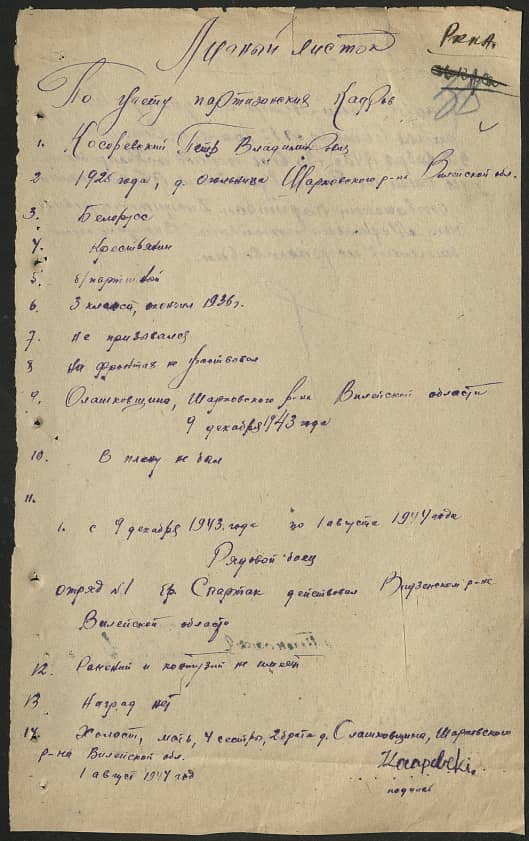 Личный листок
РККА.
По учету партизанских Кадров
1. Косаревский Петр Владимирович
2. 1925 года, д. Шарковского р-на Вилейской обл.
3. Белорусс
4. Крестьянин
5. б/партийной
6. 3 класса, окончил 1936 г.
7. Не призывался
8 На фронтах не участвовал
9. Олашковщина, Шарковского р-на Вилейской области
9 декабря 1943 года
10. В плену не был
11.
1. с 9 декабря 1943 года по 1 августа 1944 года
Рядовой боец
отряд №1 бр. Спартак действовал Видзенском р-не
Вилейской области
12. Ранений и контузий не имеет
13 Наград нет
14. Холост, мать, 4 сестры, 2 брата д. Олашковщина, Шарковского
р-на Вилейской обл.
1 август 1944 год
подпись